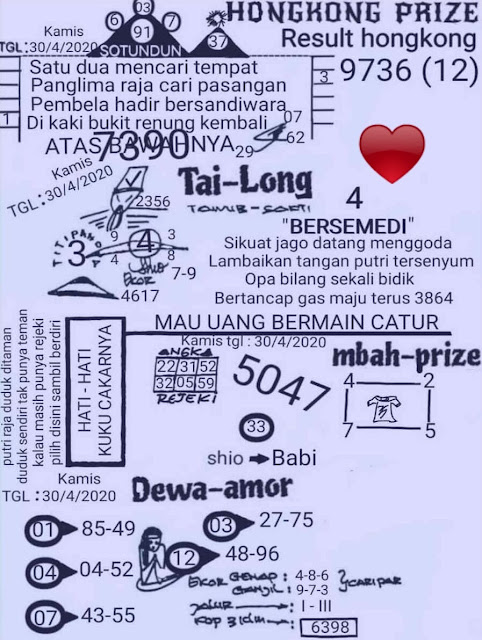 HONGKONG PRIZE
Result hongkong
9736 (12)
3
Kamis
TGL :30/4/2020
6
03
7
91
37
SOTUNDUN
Satu dua mencari tempat
Panglima raja cari pasangan
Pembela hadir bersandiwara
1
Di kaki bukit renung kembali
07
62
ATAS BAWAHNYA
29
7390
Kamis
TGL :30/4/2020
Tai-Long
2356
TITIPANDA
3
9
4
4
3
8
Shio
7-9
EKOR
4617
4
"BERSEMEDI"
Sikuat jago datang menggoda
Lambaikan tangan putri tersenyum
Opa bilang sekali bidik
Bertancap gas maju terus 3864
MAU UANG BERMAIN CATUR
Kamis tgl : 30/4/2020
mbah-prize
putri raja duduk ditaman
duduk sendiri tak punya teman
kalau masih punya rejeki
pilih disini sambil berdiri
HATI - HATI
KUKU CAKARNYA
ANGKA
22 31 52
32 05 59
REJEKI
5047
4 2
7 5
33
shio Babi
Kamis
TGL :30/4/2020
Dewa-amor
01 85-49
03 27-75
04 04-52
12 48-96
07 43-55
EKOR GENAP : 4-8-6
GANJIL : 9-7-3
I - III
6398